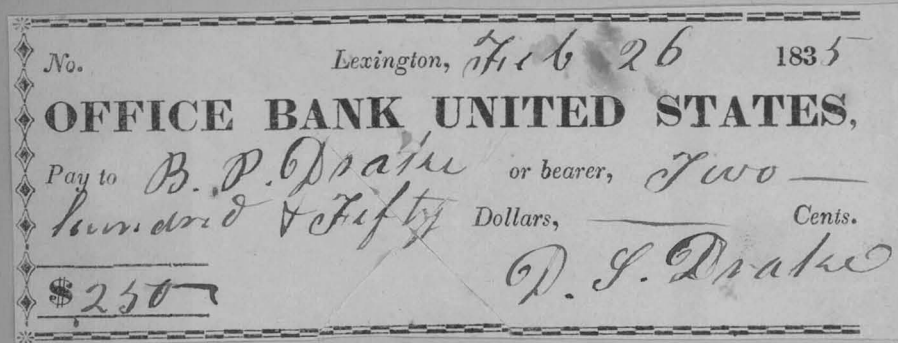 No. Lexington, Feb 26 1835
OFFICE BANK UNITED STATES,
Pay to B. P. Drake or bearer, Two —
hundred & Fifty Dollars, — Cents.
$250
D. S. Drake